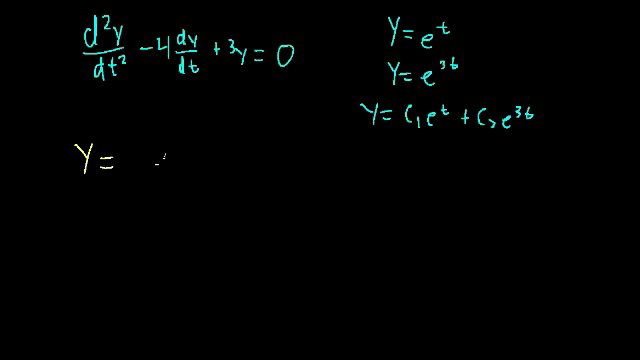 d²y/dt² - 4 dy/dt + 3y = 0
y = e^t
y = e^3t
y = c₁e^t + c₂e^3t
y =